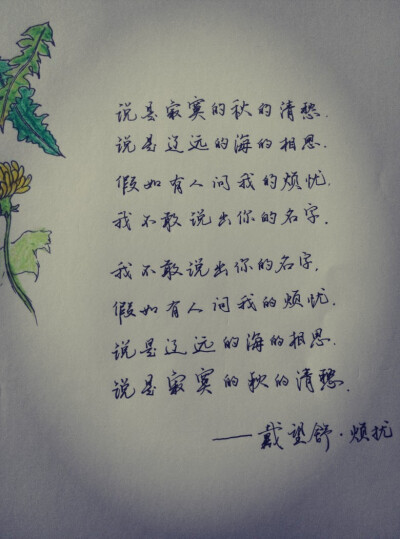 说是寂寞的秋的清愁.
说是辽远的海的相思.
假如有人问我的烦忧.
我不敢说出你的名字.
我不敢说出你的名字.
假如有人问我的烦忧.
说是辽远的海的相思.
说是寂寞的秋的清愁.
——戴望舒·烦扰